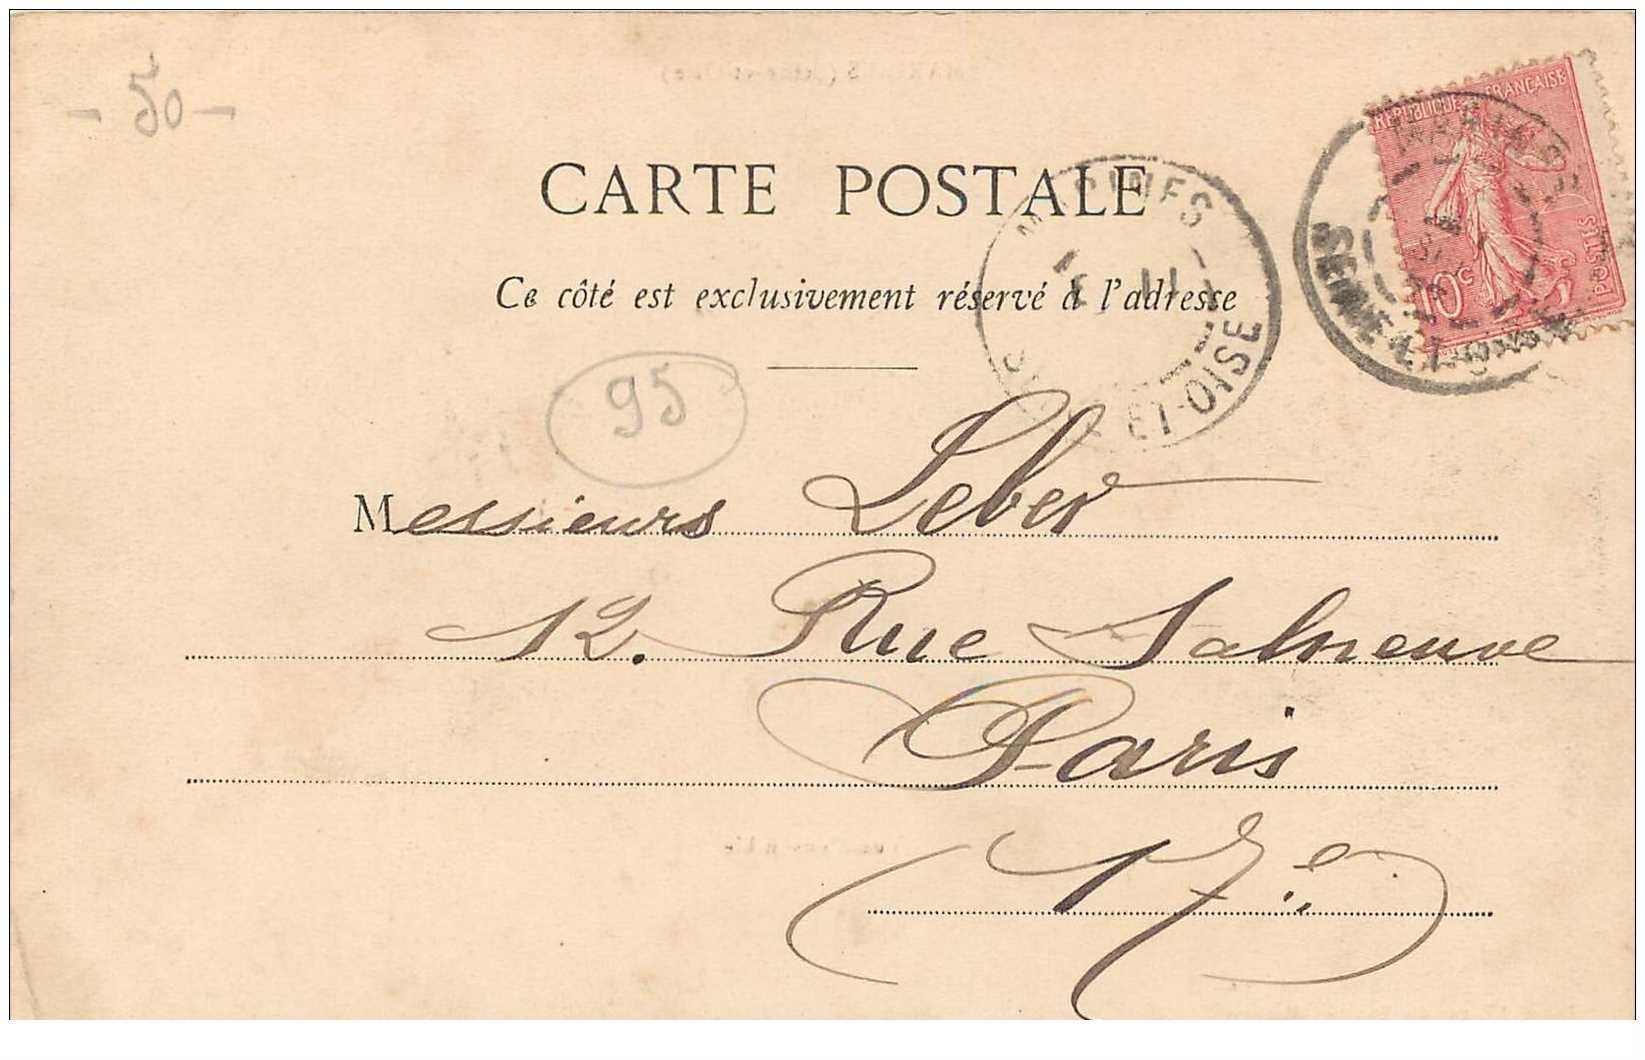 - 50 -
RÉPUBLIQUE FRANÇAISE
POSTES
10c
CARTE POSTALE
Ce côté est exclusivement réservé à l'adresse
ET-OISE
SEINE ET
95
Messieurs Leber
12. Rue Salneuve
Paris
17e